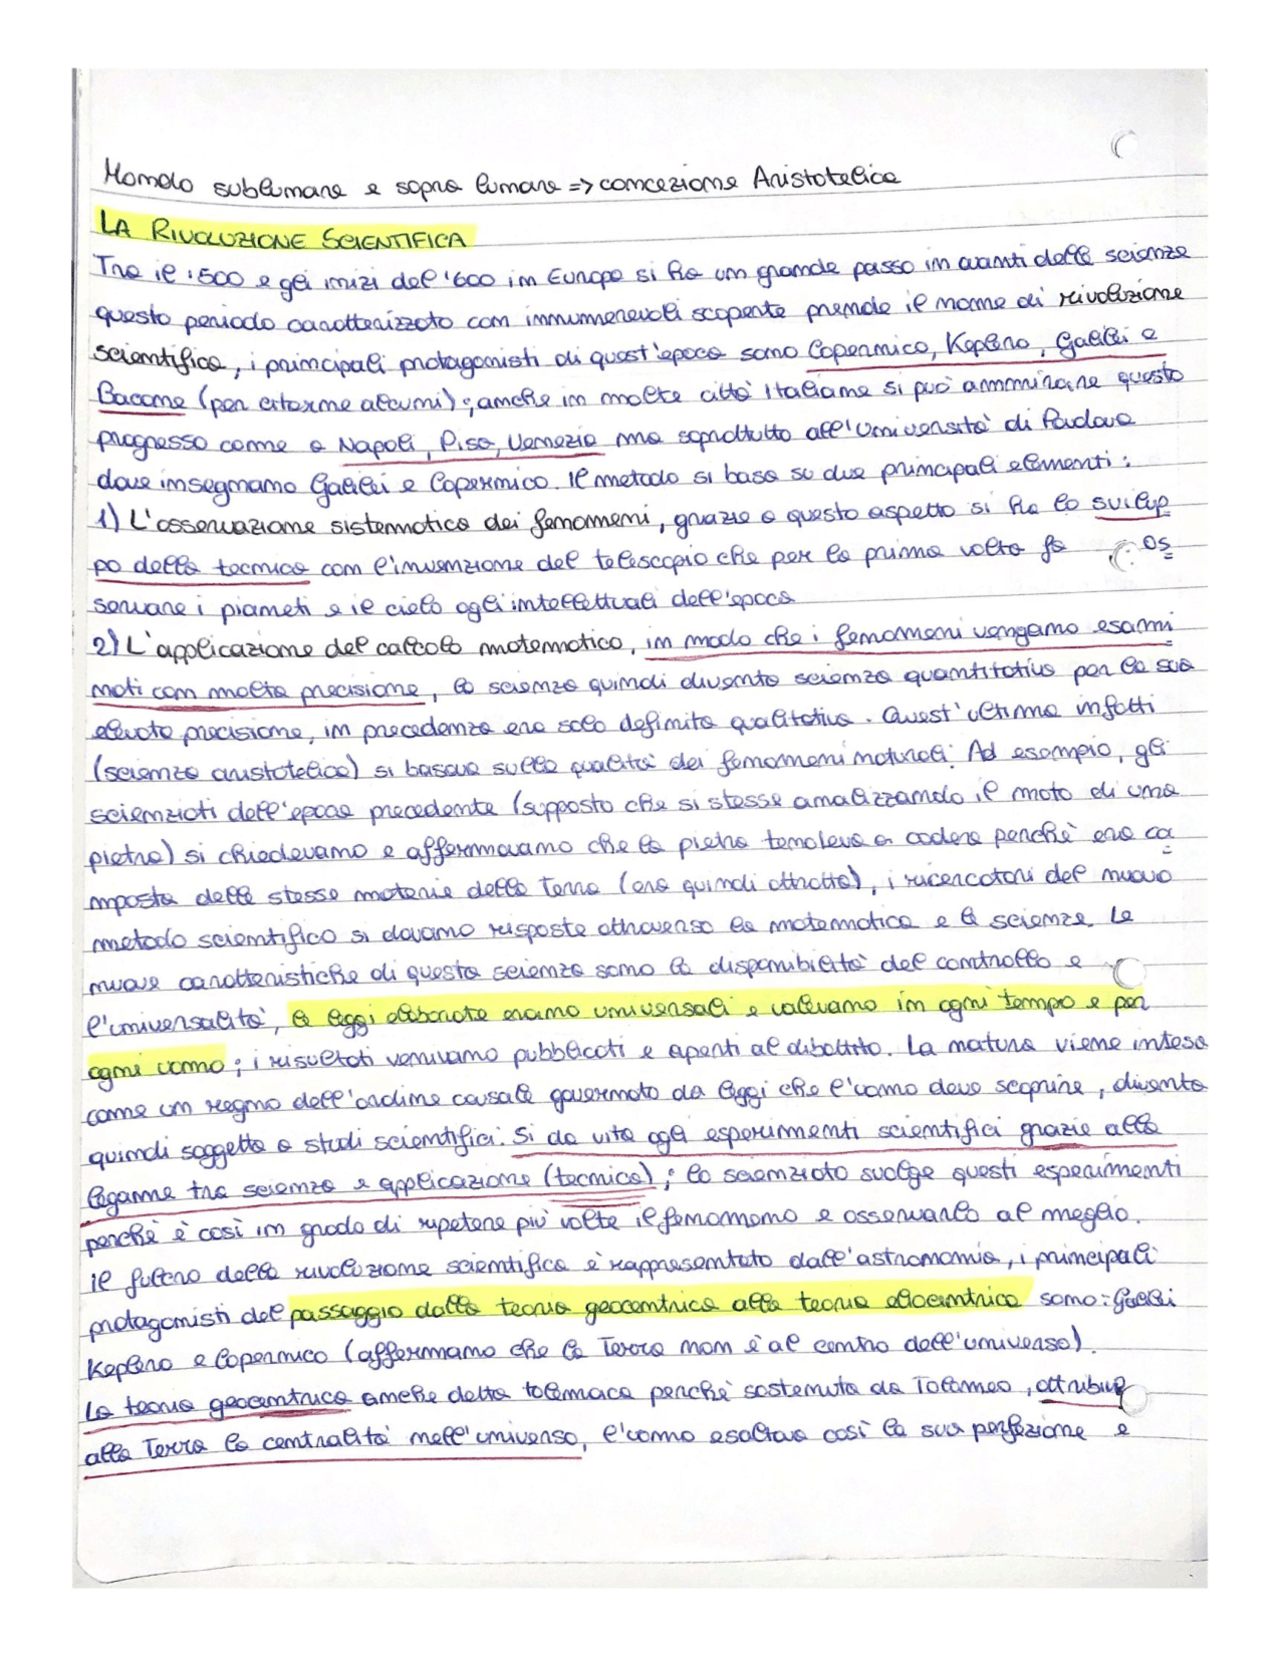 Mondo sublunare e sopra lunare => concezione Aristotelica
LA RIVOLUZIONE SCIENTIFICA
Tra il 1500 e gli inizi del '600 in Europa si ha un grande passo in avanti delle scienze
questo periodo caratterizzato con innumerevoli scoperte prende il nome di rivoluzione
scientifica, i principali protagonisti di quest'epoca sono Copernico, Keplero, Galilei e
Bacone (per citarne alcuni); anche in molte città Italiane si può ammirare questo
progresso come a Napoli, Pisa, Venezia ma soprattutto all'Università di Padova
dove insegnano Galilei e Copernico. Il metodo si basa su due principali elementi:
1) L'osservazione sistematica dei fenomeni, grazie a questo aspetto si ha lo svilup
po della tecnica con l'invenzione del telescopio che per la prima volta fa os
servare i pianeti e il cielo agli intellettuali dell'epoca
2) L'applicazione del calcolo matematico, in modo che i fenomeni vengano esami
nati con molta precisione, la scienza quindi diventa scienza quantitativa per la sua
elevata precisione, in precedenza era solo definita qualitativa. Quest'ultima infatti
(scienza aristotelica) si basava sulla qualità dei fenomeni naturali. Ad esempio, gli
scienziati dell'epoca precedente (supposto che si stesse analizzando il moto di una
pietra) si chiedevano e affermavano che la pietra tendeva a cadere perchè era co
mposta delle stesse materie della Terra (era quindi attratta), i ricercatori del nuovo
metodo scientifico si davano risposte attraverso la matematica e le scienze. Le
nuove caratteristiche di questa scienza sono la disponibilità del controllo e
l'universalità, le leggi elaborate erano universali e valevano in ogni tempo e per
ogni uomo; i risultati venivano pubblicati e aperti al dibattito. La natura viene intesa
come un regno dell'ordine causale governato da leggi che l'uomo deve scoprire, diventa
quindi soggetta a studi scientifici. Si da vita agli esperimenti scientifici grazie alla
legame tra scienza e applicazione (tecnica); lo scienziato svolge questi esperimenti
perchè è così in grado di ripetere più volte il fenomeno e osservarlo al meglio.
Il fulcro della rivoluzione scientifica è rappresentato dall'astronomia, i principali
protagonisti del passaggio dalla teoria geocentrica alla teoria eliocentrica sono: Galilei
Keplero e Copernico (affermano che la Terra non è al centro dell'universo).
La teoria geocentrica anche detta tolemaica perchè sostenuta da Tolomeo, attribuì
alla Terra la centralità nell'universo, l'uomo esaltava così la sua perfezione e